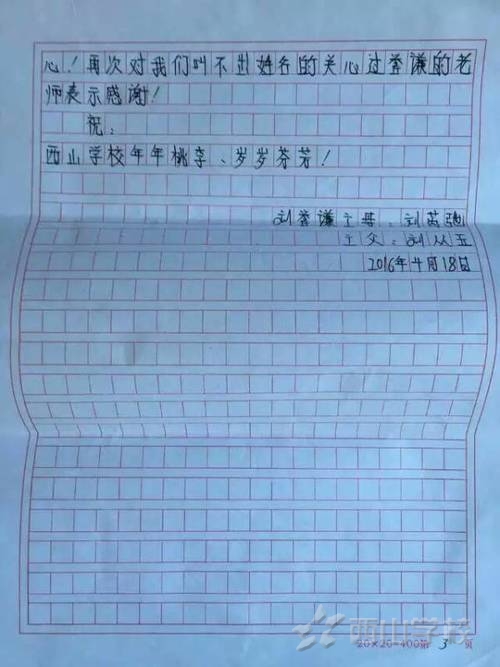 心！再次对我们叫不出姓名的关心过李谦的老
师表示感谢！
祝：
西山学校年年桃李、岁岁芬芳！
刘 谦 母：刘 
父：刘从五
2016年4月18日
西山学校
20×20=400 第 3 页